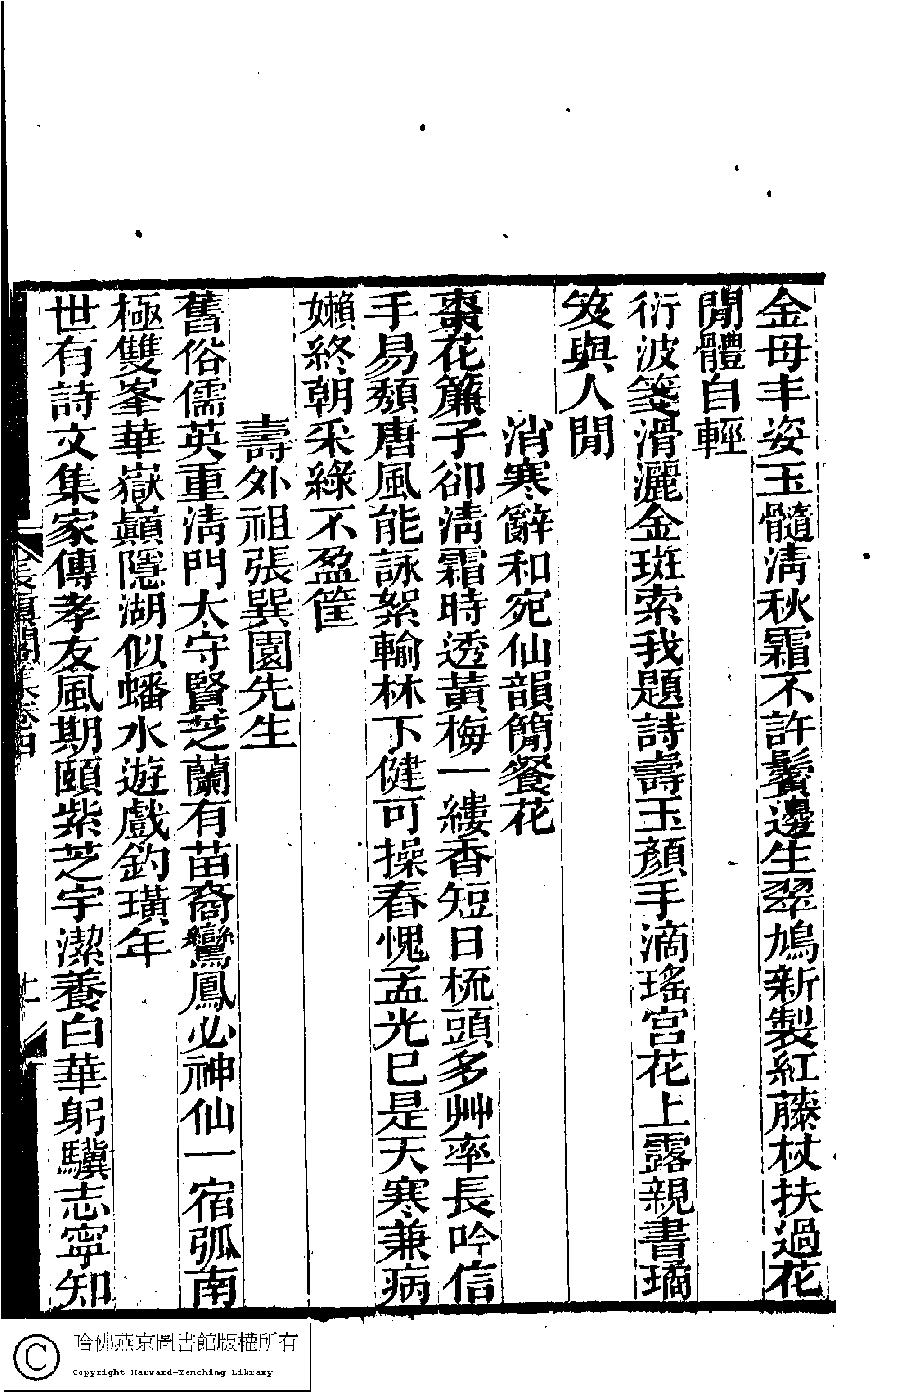 金母丰姿玉髓清秋霜不許鬢邊生翠鳩新製紅藤杖扶過花
閒體自輕
衍波箋滑灑金斑索我題詩壽玉顏手滴瑤宮花上露親書璚
笈與人閒
消寒辭和宛仙韻簡餐花
棗花簾子卻清霜時透黃梅一縷香短日梳頭多艸率長吟信
手易頹唐風能詠絮輸林下健可操舂愧孟光已是天寒兼病
嬾終朝采綠不盈筐
壽外祖張巽園先生
舊俗儒英重清門太守賢芝蘭有苗裔鸞鳳必神仙一宿弧南
極雙峯華嶽巔隱湖似蟠水遊戲釣璜年
世有詩文集家傳孝友風期頤紫芝宇潔養白華躬驥志寧知
卷四
十一
哈佛燕京圖書館版權所有
Copyright Harvard-Yenching Library